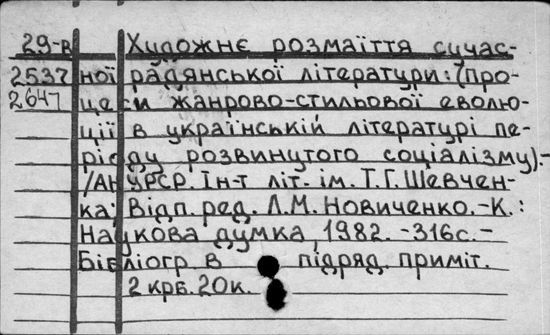 29-в Художнє розмаїття сучас-
2537 ної радянської літератури: (про-
2647 цеси жанрово-стильової еволю-
ції в українській літературі пе-
ріоду розвинутого соціалізму).-
/АН УРСР. Ін-т літ. ім. Т.Г.Шевчен-
ка; Відп. ред. Л.М. Новиченко.-К.:
Наукова думка, 1982. -316с.-
Бібліогр. в підряд. приміт.
2 крб. 20к.